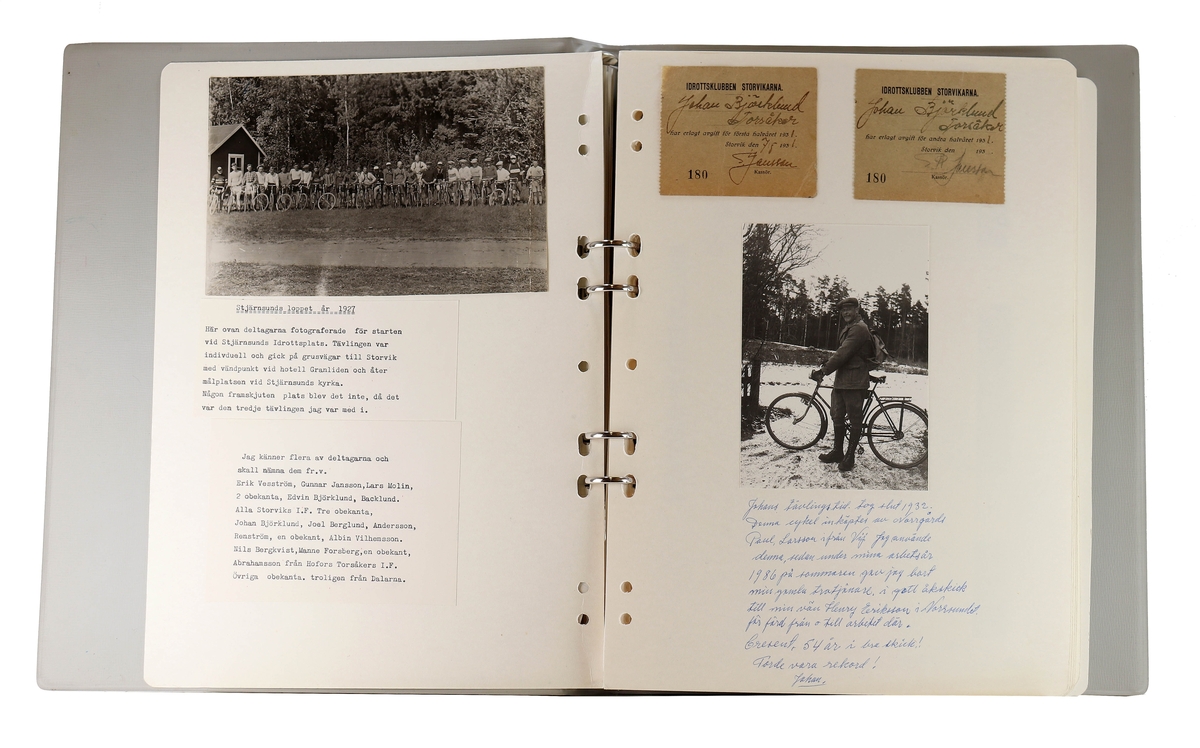 Stjärnsunds loppet år 1927
Här ovan deltagarna fotograferade för starten
vid Stjärnsunds Idrottsplats. Tävlingen var
indivduell och gick på grusvägar till Storvik
med vändpunkt vid hotell Granliden och åter
målplatsen vid Stjärnsunds kyrka.
Någon framskjuten plats blev det inte, då det
var den tredje tävlingen jag var med i.
Jag känner flera av deltagarna och
skall nämna dem fr.v.
Erik Vesström, Gunnar Jansson,Lars Molin,
2 obekanta, Edvin Björklund, Backlund.
Alla Storviks I.F. Tre obekanta,
Johan Björklund, Joel Berglund, Andersson,
Renström, en obekant, Albin Vilhemsson.
Nils Bergkvist,Manne Forsberg,en obekant,
Abrahamsson från Hofors Torsåkers I.F.
Övriga obekanta. troligen från Dalarna.
IDROTTSKLUBBEN STORVIKARNA.
Johan Björklund
Torsåker
har erlagt avgift för första halvåret 1931.
Storvik den 7/5 1931
Jansson
180 Kassör.
IDROTTSKLUBBEN STORVIKARNA.
Johan Björklund
Torsåker
har erlagt avgift för andra halvåret 1931.
Storvik den 193
Jansson
180 Kassör.
Johans Tävlingstid tog slut 1932.
Denna cykel inköptes av Norrgårds
Paul, Larsson ifrån Vij. Jag använde
denna, sedan under mina arbetsår
1986 på sommaren gav jag bort
min gamla trotjänare. i gott åkskick
till min vän Henry Eriksson i Norrsundet.
för färd från o till arbetet där.
Cresent, 54 år i bra skick!
Torde vara rekord!
Johan.